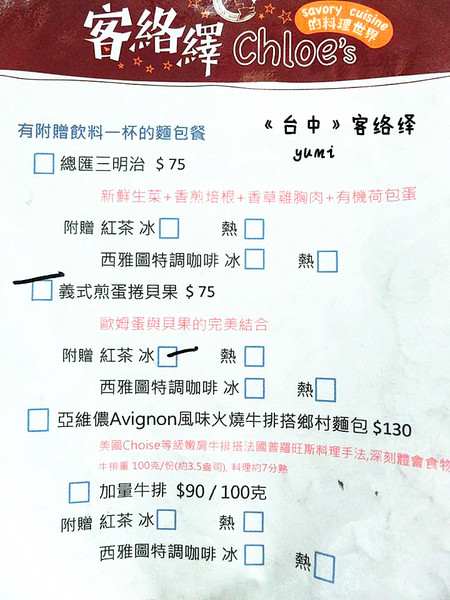 客絡繹 Chloe's
savory cuisine
的料理世界
《台中》客络绎
yumi
有附贈飲料一杯的麵包餐
總匯三明治 $75
新鮮生菜+香煎培根+香草雞胸肉+有機荷包蛋
附贈 紅茶 冰 熱
西雅圖特調咖啡 冰 熱
義式煎蛋捲貝果 $75
歐姆蛋與貝果的完美結合
附贈 紅茶 冰 熱
西雅圖特調咖啡 冰 熱
亞維儂Avignon風味火燒牛排搭鄉村麵包 $130
美國Choise等級嫩肩牛排搭法國普羅旺斯料理手法,深刻體會食物
牛排重 100克/份(約3.5盎司), 料理約7分熟
加量牛排 $90 / 100克
附贈 紅茶 冰 熱
西雅圖特調咖啡 冰 熱